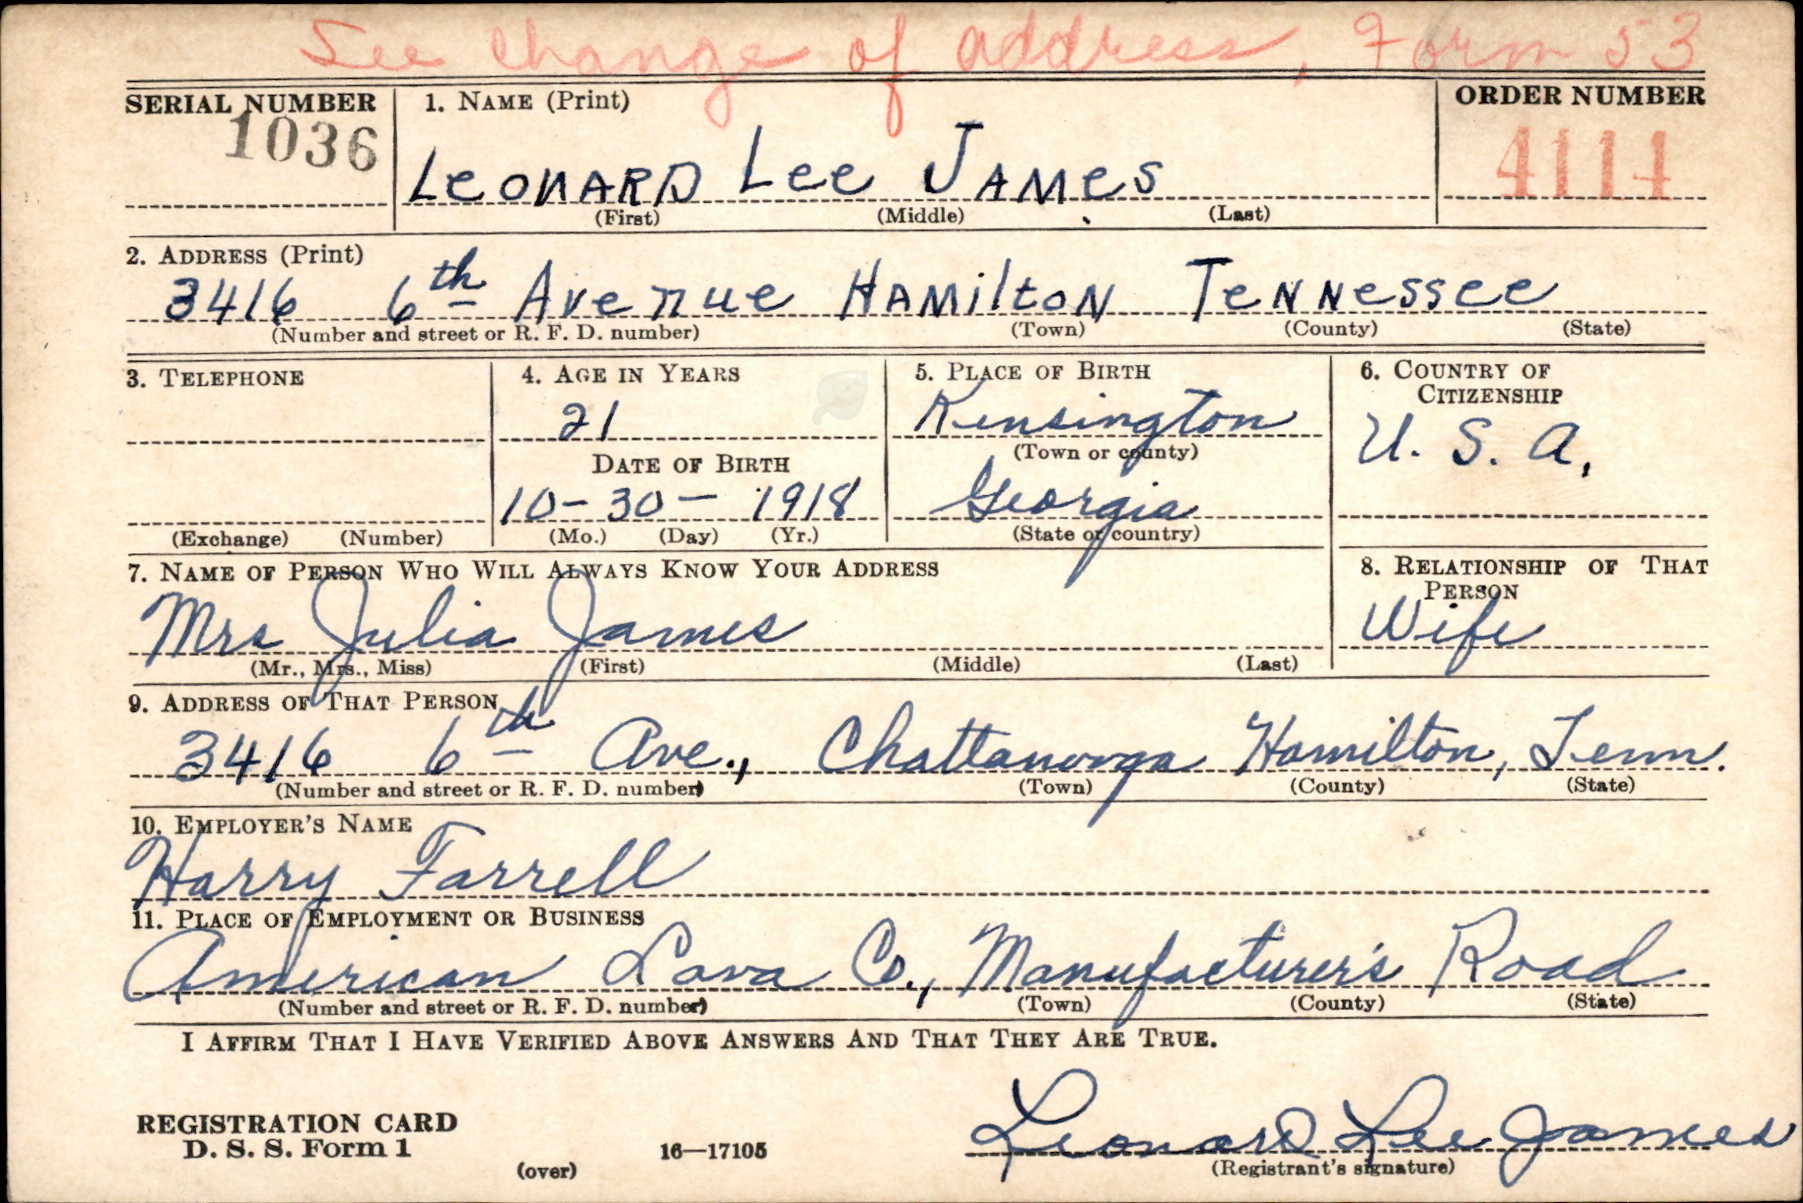 See change of address, Form 53
SERIAL NUMBER
1036
1. NAME (Print)
ORDER NUMBER
4114
LeONARD Lee JAMes
(First) (Middle) (Last)
2. ADDRESS (Print)
3416 6th Avenue HAMiltoN TeNNessee
(Number and street or R. F. D. number) (Town) (County) (State)
3. TELEPHONE
(Exchange) (Number)
4. AGE IN YEARS
21
DATE OF BIRTH
10-30-1918
(Mo.) (Day) (Yr.)
5. PLACE OF BIRTH
Kensington
(Town or county)
Georgia
(State or country)
6. COUNTRY OF
CITIZENSHIP
U. S. A.
7. NAME OF PERSON WHO WILL ALWAYS KNOW YOUR ADDRESS
Mrs Julia James
(Mr., Mrs., Miss) (First) (Middle) (Last)
8. RELATIONSHIP OF THAT
PERSON
Wife
9. ADDRESS OF THAT PERSON
3416 6th Ave., Chattanooga Hamilton, Tenn.
(Number and street or R. F. D. number) (Town) (County) (State)
10. EMPLOYER'S NAME
Harry Farrell
11. PLACE OF EMPLOYMENT OR BUSINESS
American Lava Co., Manufacturer's Road
(Number and street or R. F. D. number) (Town) (County) (State)
I AFFIRM THAT I HAVE VERIFIED ABOVE ANSWERS AND THAT THEY ARE TRUE.
REGISTRATION CARD
D. S. S. Form 1
(over)
16—17105
Leonard Lee James
(Registrant's signature)